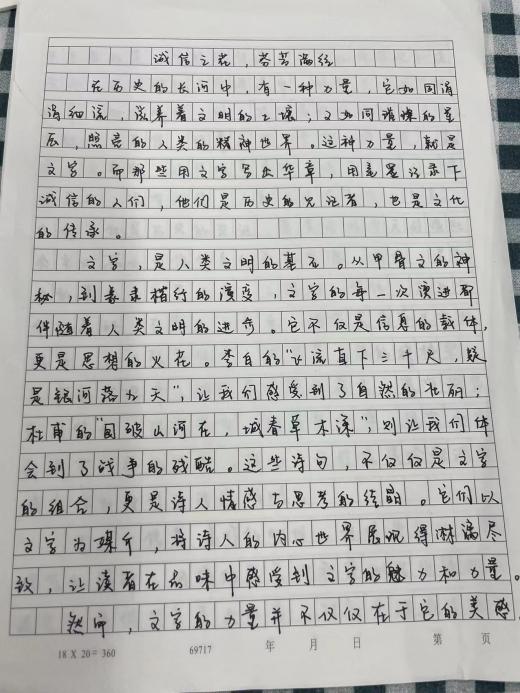 诚信之花，芬芳满径
在历史的长河中，有一种力量，它如同涓
涓细流，滋养着文明的土壤；又如同璀璨的星
辰，照亮的人类的精神世界。这种力量，就是
文字。而那些用文字写出华章，用差墨记录下
诚信的人们，他们是历史的见证者，也是文化
的传承。
文字，是人类文明的基石。从甲骨文的神
秘，到篆隶楷行的演变，文字的每一次演进都
伴随着人类文明的进步。它不仅是信息的载体，
更是思想的火花。李白的“飞流直下三千尺，疑
是银河落九天”，让我们感受到了自然的壮丽；
杜甫的“国破山河在，城春草木深”，则让我们体
会到了战争的残酷。这些诗句，不仅仅是文字
的组合，更是诗人情感与思考的结晶。它们以
文字为媒介，将诗人的内心世界展现得淋漓尽
致，让读者在品味中感受到文字的魅力和力量。
然而，文字的力量并不仅仅在于它的美感，
18 X 20 = 360 69717 年 月 日 第 页